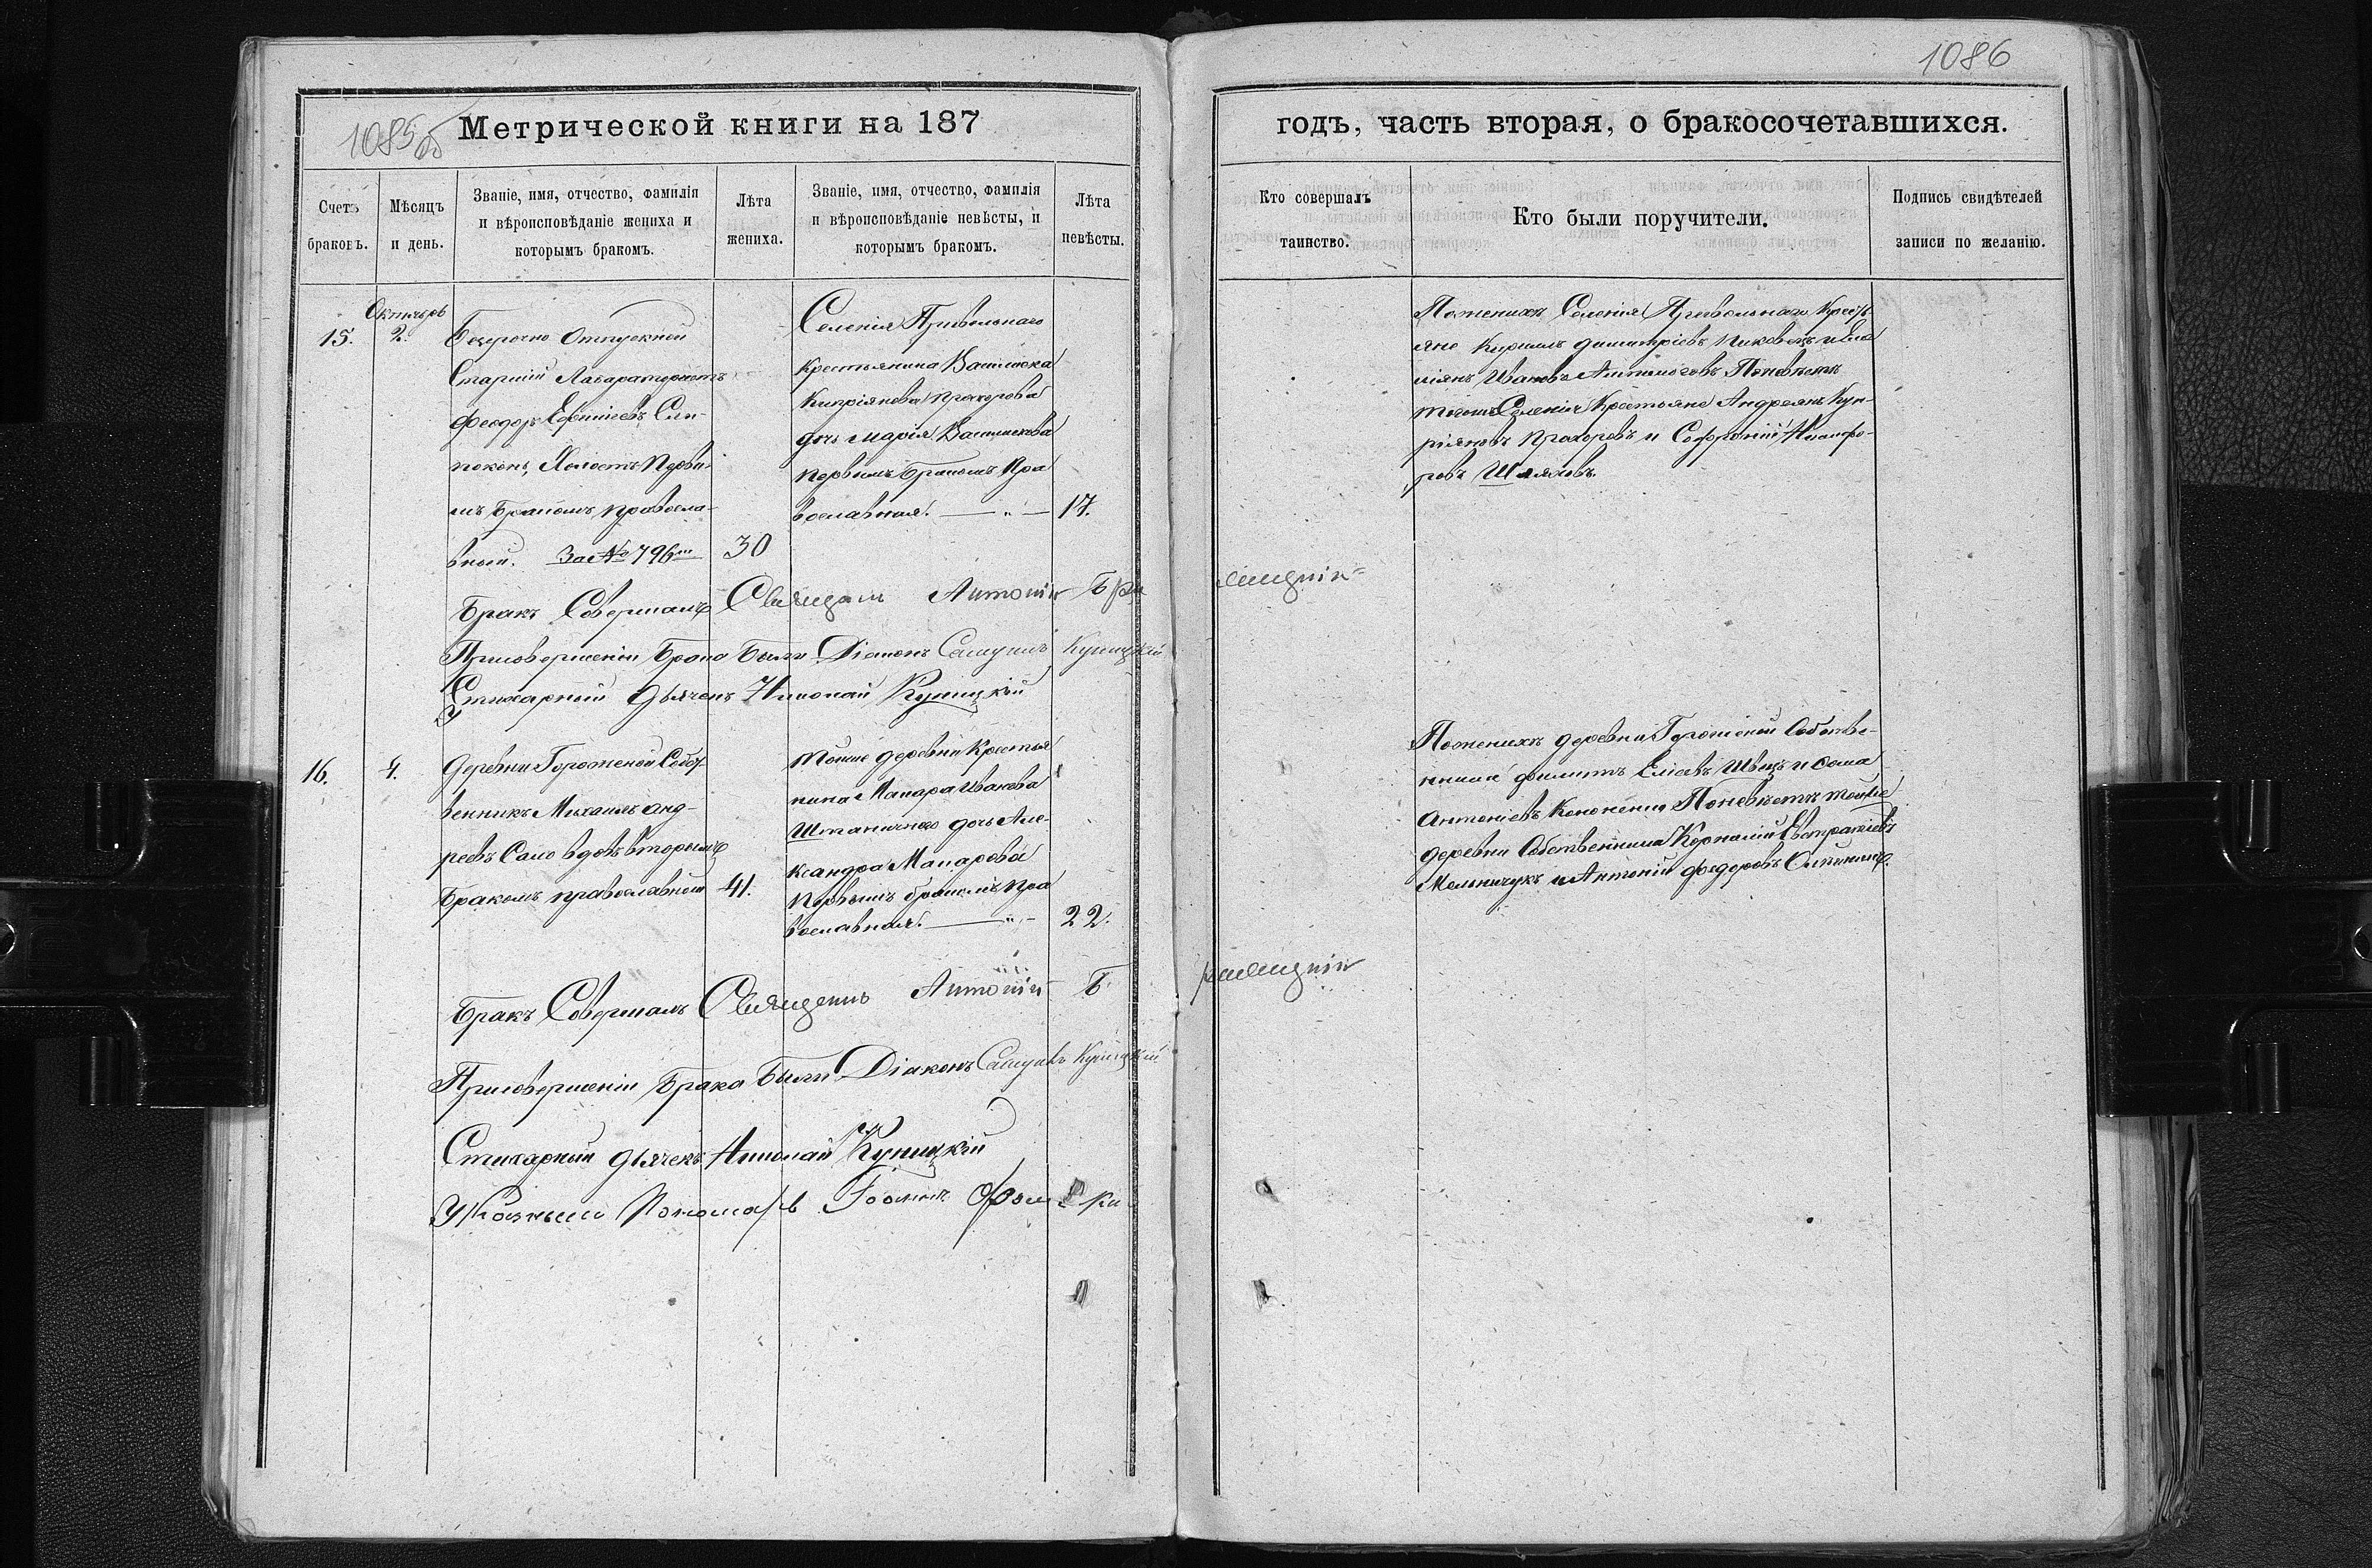 1085об
Метрической книги на 187
Счетъ браковъ.
Мѣсяцъ и день.
Званіе, имя, отчество, фамилія
и вѣроисповѣданіе жениха и
которымъ бракомъ.
Лѣта жениха.
Званіе, имя, отчество, фамилія
и вѣроисповѣданіе невѣсты, и
которымъ бракомъ.
Лѣта невѣсты.
15.
Октября
2.
Безсрочно Отпускной
Старшій Лабаратористъ
Феодоръ Ефиміевъ
Холостъ Первы-
мъ Бракомъ правосла-
вный. За № 796
30
Селенія Привольнаго
крестьянина
Кипріянова Прохорова
дочь Марія
первымъ бракомъ Пра
вославная. — „ —
17.
Бракъ Совершалъ Священ Антоній
При совершеніи Брака Были Діаконъ Самуилъ Куницкій
Стихарный Дьячекъ Николай Куницкій
16.
4.
Деревни Гороженой Собст
венникъ Михаилъ Анд-
реевъ Само вдовъ вторымъ
Бракомъ православный
41.
Тойже деревни Крестья
нина Макара Иванова
дочь Але-
ксандра Макарова
Первымъ бракомъ пра
вославная. — „ —
22.
Бракъ Совершалъ Священ Антоній
При совершеніи Брака Были Діаконъ Самуилъ Куницкій
Стихарный Дьячекъ Николай Куницкій
Указный Пономарь
1086
годъ, часть вторая, о бракосочетавшихся.
Кто совершалъ таинство.
Кто были поручители.
Подпись свидѣтелей
записи по желанію.
По женихѣ Селенія Привольнаго Кресть
яне Кирилъ Димитріевъ
Ивановъ По невѣстѣ
тогоже Селенія Крестьяне Андреянъ Куп-
ріяновъ Прохоровъ и Софроній Никифо-
ровъ Шляховъ.
По женихѣ деревни Гороженой Собстве-
нники Филипъ Еліевъ Швецъ и
Антоніевъ Кононенко По невѣстѣ тойже
деревни Собственники Корнилій Евстратіевъ
Мельничукъ и Антоній Федоровъ